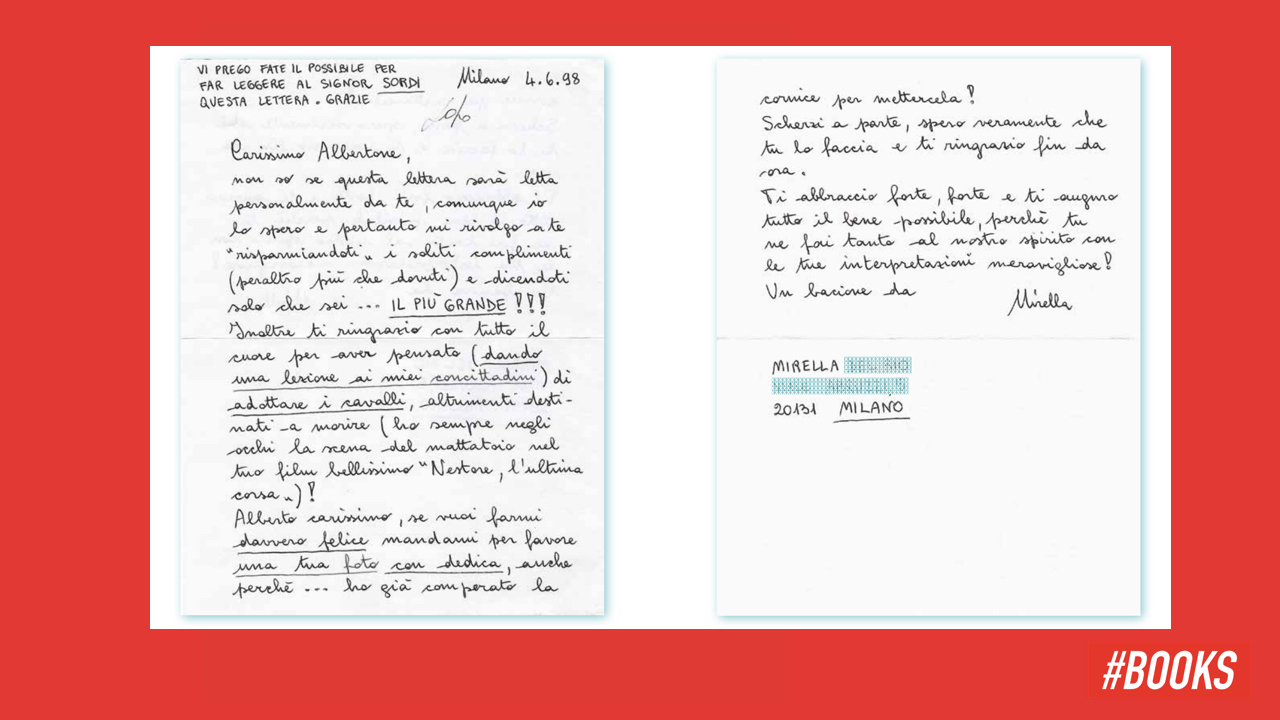 VI PREGO FATE IL POSSIBILE PER
FAR LEGGERE AL SIGNOR SORDI
QUESTA LETTERA. GRAZIE
Milano 4.6.98
Carissimo Albertone,
non so se questa lettera sarà letta
personalmente da te, comunque io
lo spero e pertanto mi rivolgo a te
"risparmiandoti„ i soliti complimenti
(peraltro più che dovuti) e dicendoti
solo che sei ... IL PIÙ GRANDE!!!
Inoltre ti ringrazio con tutto il
cuore per aver pensato (dando
una lezione ai miei concittadini) di
adottare i cavalli, altrimenti desti-
nati a morire (ho sempre negli
occhi la scena del mattatoio nel
tuo film bellissimo "Nestore, l'ultima
corsa„)!
Alberto carissimo, se vuoi farmi
davvero felice mandami per favore
una tua foto con dedica, anche
perchè ... ho già comperato la
cornice per mettercela!
Scherzi a parte, spero veramente che
tu lo faccia e ti ringrazio fin da
ora.
Ti abbraccio forte, forte e ti auguro
tutto il bene possibile, perchè tu
ne fai tanto al nostro spirito con
le tue interpretazioni meravigliose!
Un bacione da
Mirella
MIRELLA
20131 MILANO
#BOOKS